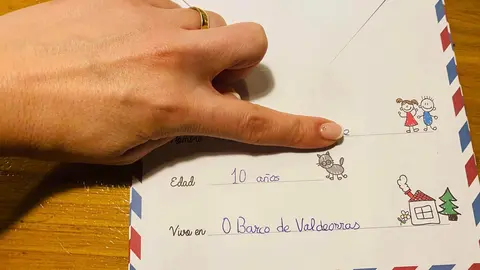 Edad 10 años
Vivo en O Barco de Valdeorras